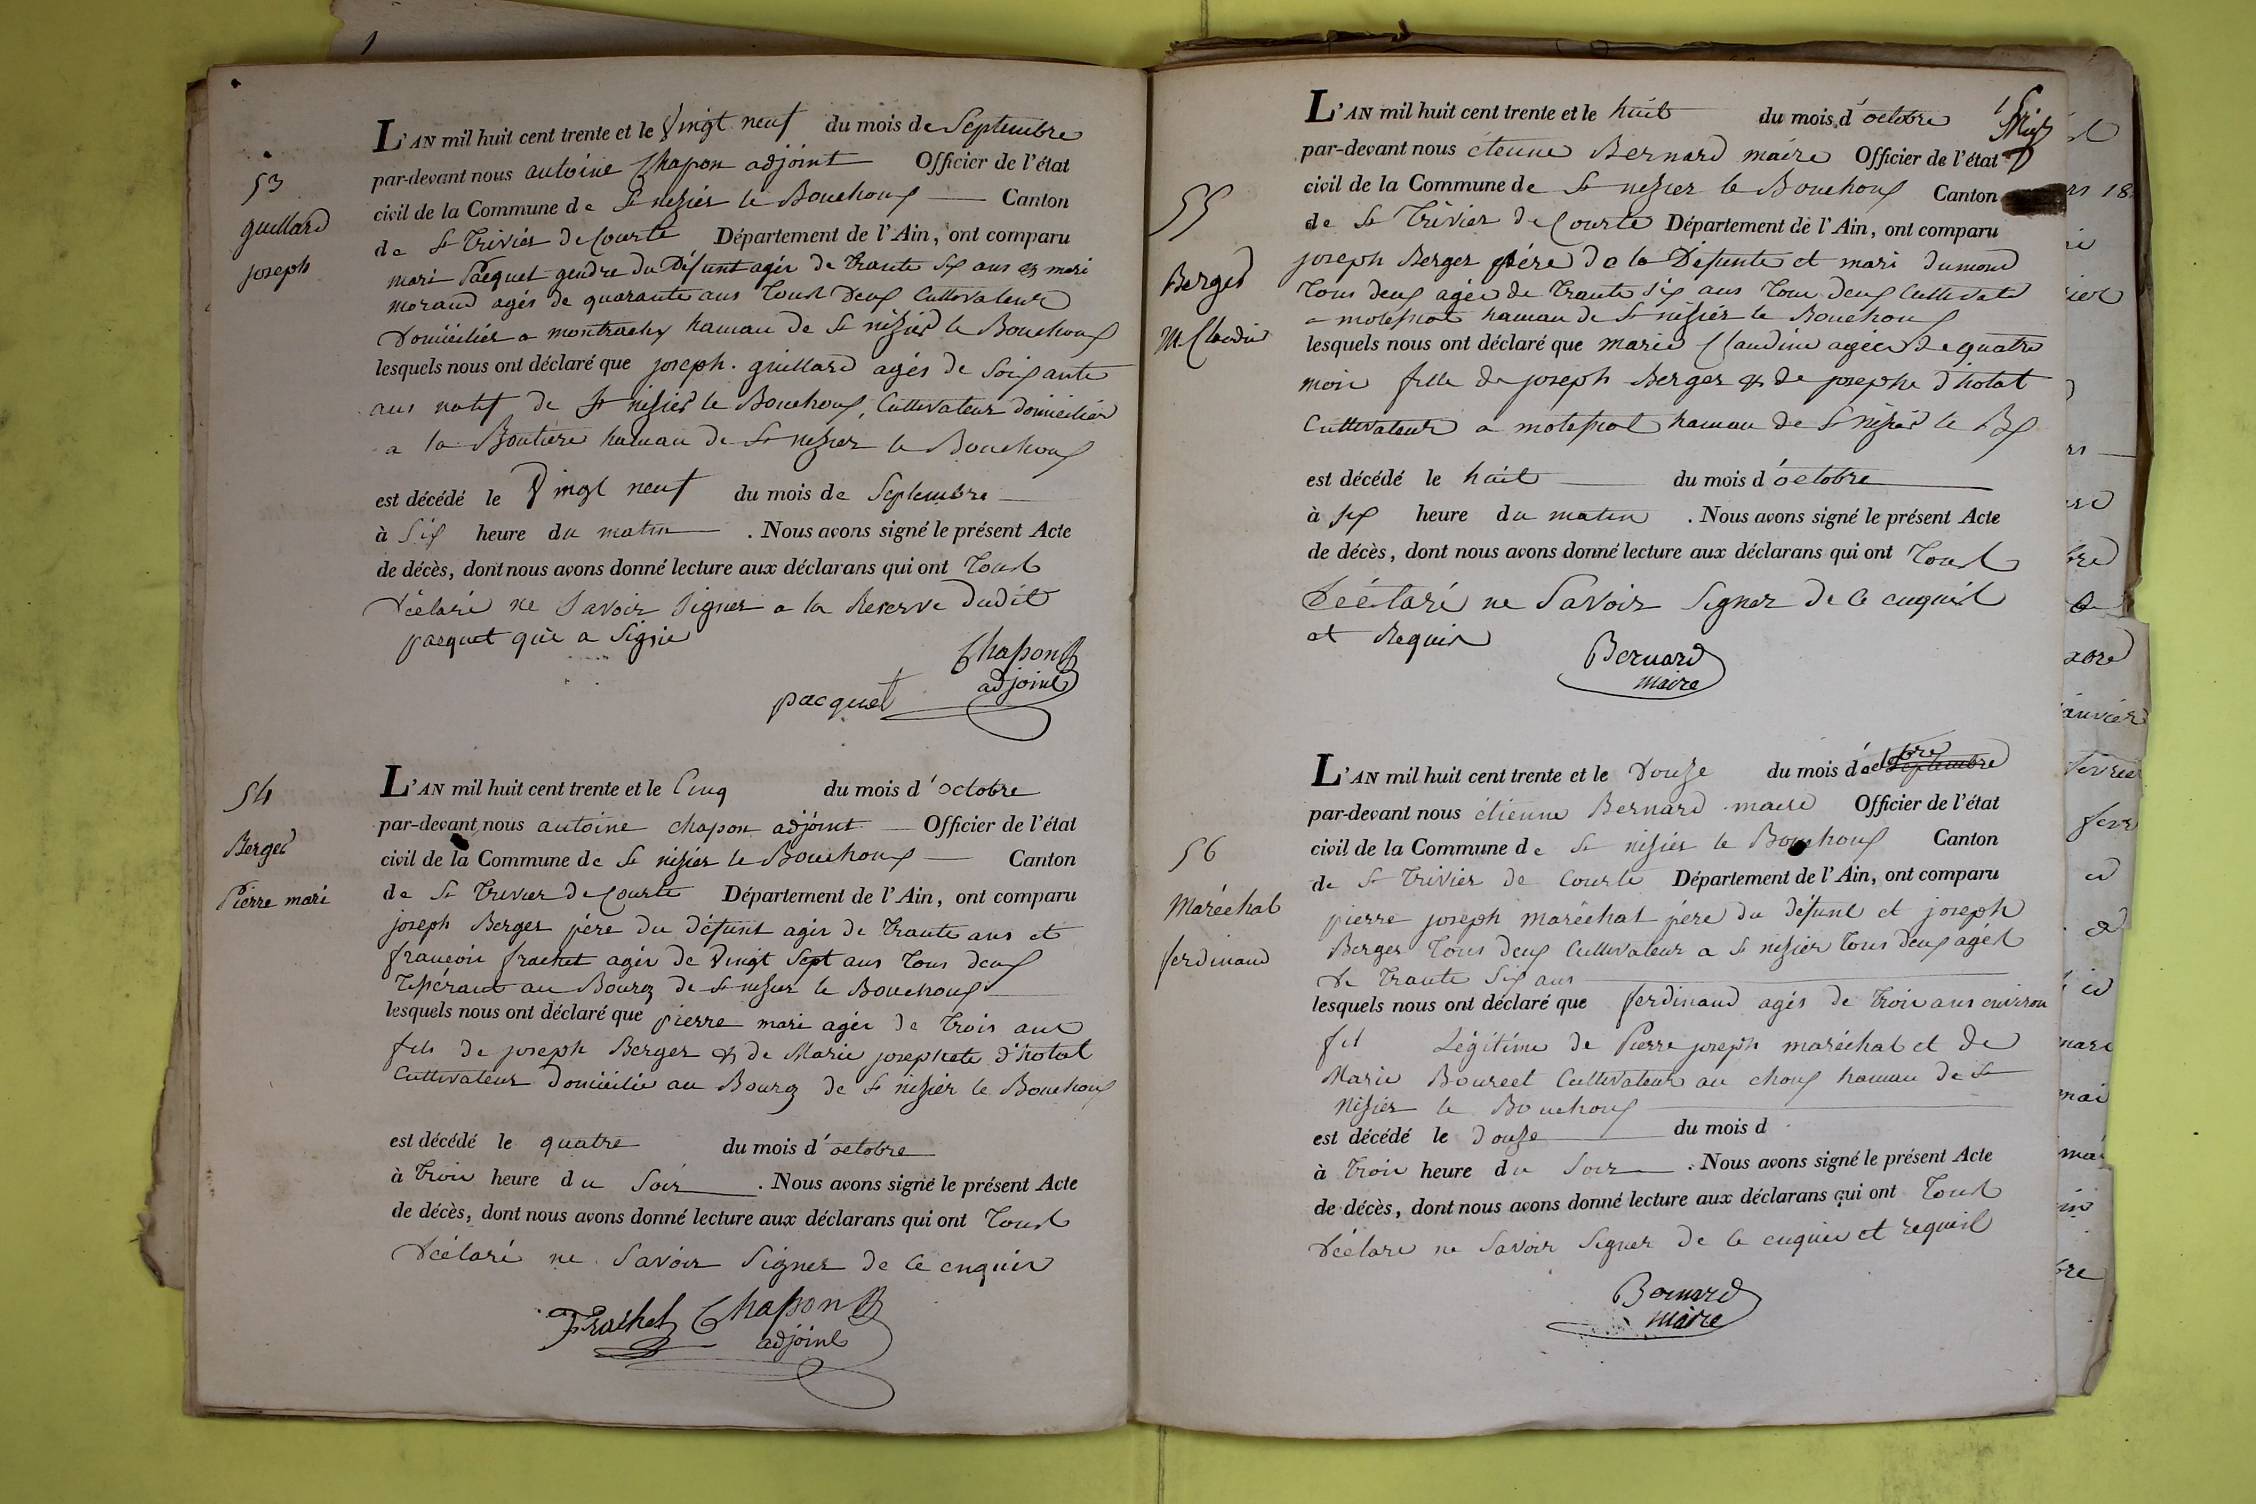 53
guillard
joseph
L'AN mil huit cent trente et le Vingt neuf du mois de Septembre
par-devant nous antoine Chapon adjoint Officier de l'état
civil de la Commune de St nizier le Bouchoux Canton
de St Trivier de Courte Département de l'Ain, ont comparu
mari Pacquet gendre du Défunt agér de trante six ans & mari
morand agés de quarante ans Tout Deux Cultivateur
Domicilier a montrachy hamau de St nizier le Bouchoux
lesquels nous ont déclaré que joseph guillard agés de Soixante
ans natif de St nizier le Bouchoux, Cultivateur domicilier
a la Boutiere hamau de St nizier le Bouchoux
est décédé le Vingt neuf du mois de Septembre
à Six heure du matin . Nous avons signé le présent Acte
de décès, dont nous avons donné lecture aux déclarans qui ont Tout
Déclaré ne Savoir Signer a la Reserve Dudit
pacquet qui a Signé
Chapon
adjoint
pacquet
54
Berger
Pierre mari
L'AN mil huit cent trente et le Cinq du mois d'octobre
par-devant nous antoine chapon adjoint Officier de l'état
civil de la Commune de St nizier le Bouchoux Canton
de St Trivier de Courte Département de l'Ain, ont comparu
joseph Berger pére du défunt agér de trante ans et
francoir frachet agér de Vingt Sept ans Tous deux
Tisérant au Bourg de St nizier le Bouchoux
lesquels nous ont déclaré que pierre mari agér de trois ans
fils de joseph Berger & de Marie josephete d'hotal
Cultivateur Domicilié au Bourg de St nizier le Bouchoux
est décédé le quatre du mois d'octobre
à Troir heure du Soir . Nous avons signé le présent Acte
de décès, dont nous avons donné lecture aux déclarans qui ont Tout
Déclaré ne Savoir Signer de Ce enquir
Frachet Chapon
adjoint
L'AN mil huit cent trente et le huit du mois d'octobre
55
Berger
M Claudin
par-devant nous étienne Bernard maire Officier de l'état
civil de la Commune de St nizier le Bouchoux Canton
de St Trivier de Courte Département de l'Ain, ont comparu
joseph Berger pére de la Défunte et mari dumond
Tous deux agér de trante six ans Tous deux Cultivate
a molesnot hamau de St nizier le Bouchoux
lesquels nous ont déclaré que marie Claudine agéer de quatre
moir fille de joseph Berger & de josephe d'hotal
Cultivateur a molesnot hamau de St nizier le Bx
est décédé le huit du mois d'octobre
à six heure du matin . Nous avons signé le présent Acte
de décès, dont nous avons donné lecture aux déclarans qui ont Tout
Déclaré ne Savoir Signer de Ce enquit
et Requir
Bernard
maire
L'AN mil huit cent trente et le Douze du mois d'octobre Septembre
56
Maréchal
ferdinand
par-devant nous étienne Bernard maire Officier de l'état
civil de la Commune de St nizier le Bouchoux Canton
de St Trivier de Courte Département de l'Ain, ont comparu
pierre joseph maréchal pére du défunt et joseph
Berger Tous deux Cultivateur a St nizier Tous deux agér
de trante Six ans
lesquels nous ont déclaré que ferdinand agér de Troir ans environ
fil Légitime de Pierre joseph maréchal et de
Marie Bourcet Cultivateur au choux hamau de St
nizier le Bouchoux
est décédé le Douze du mois d
à Troir heure du Soir . Nous avons signé le présent Acte
de décès, dont nous avons donné lecture aux déclarans qui ont Tout
Déclaré ne Savoir Signer de Ce enquir et requit
Bernard
maire